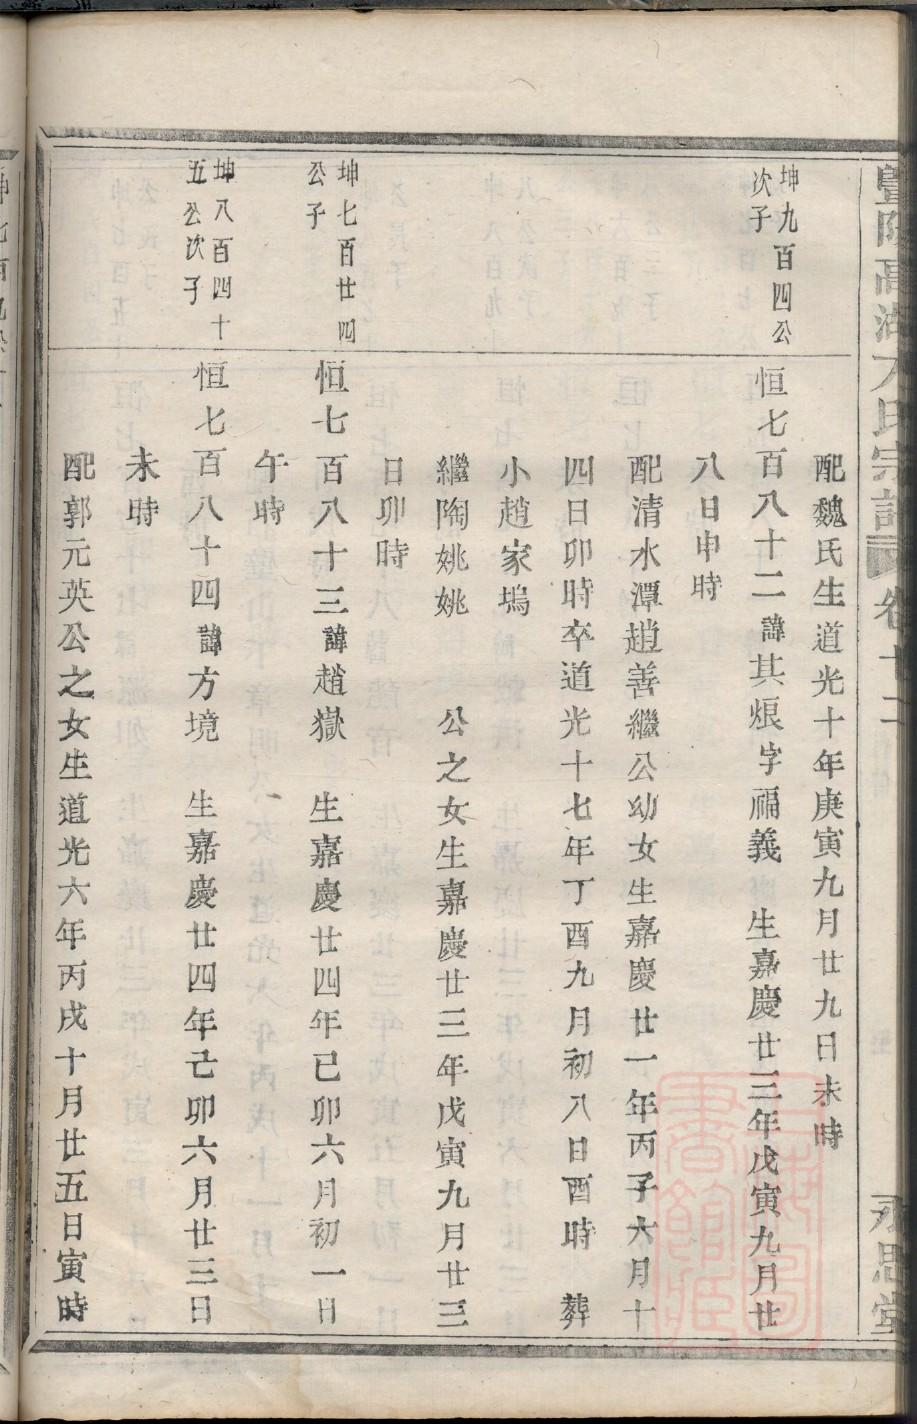 暨陽高湖方氏宗譜 卷 思堂
配魏氏生道光十年庚寅九月廿九日未時
坤九百四公
次子
恒七百八十二諱其烺字福義 生嘉慶廿三年戊寅九月廿
八日申時
配清水潭趙善繼公幼女生嘉慶廿一年丙子六月十
四日卯時卒道光十七年丁酉九月初八日酉時 葬
小趙家塢
繼陶姚姚 公之女生嘉慶廿三年戊寅九月廿三
日卯時
坤七百廿四
公子
恒七百八十三諱趙嶽 生嘉慶廿四年已卯六月初一日
午時
坤八百四十
五公次子
恒七百八十四諱方境 生嘉慶廿四年己卯六月廿三日
未時
配郭元英公之女生道光六年丙戌十月廿五日寅時